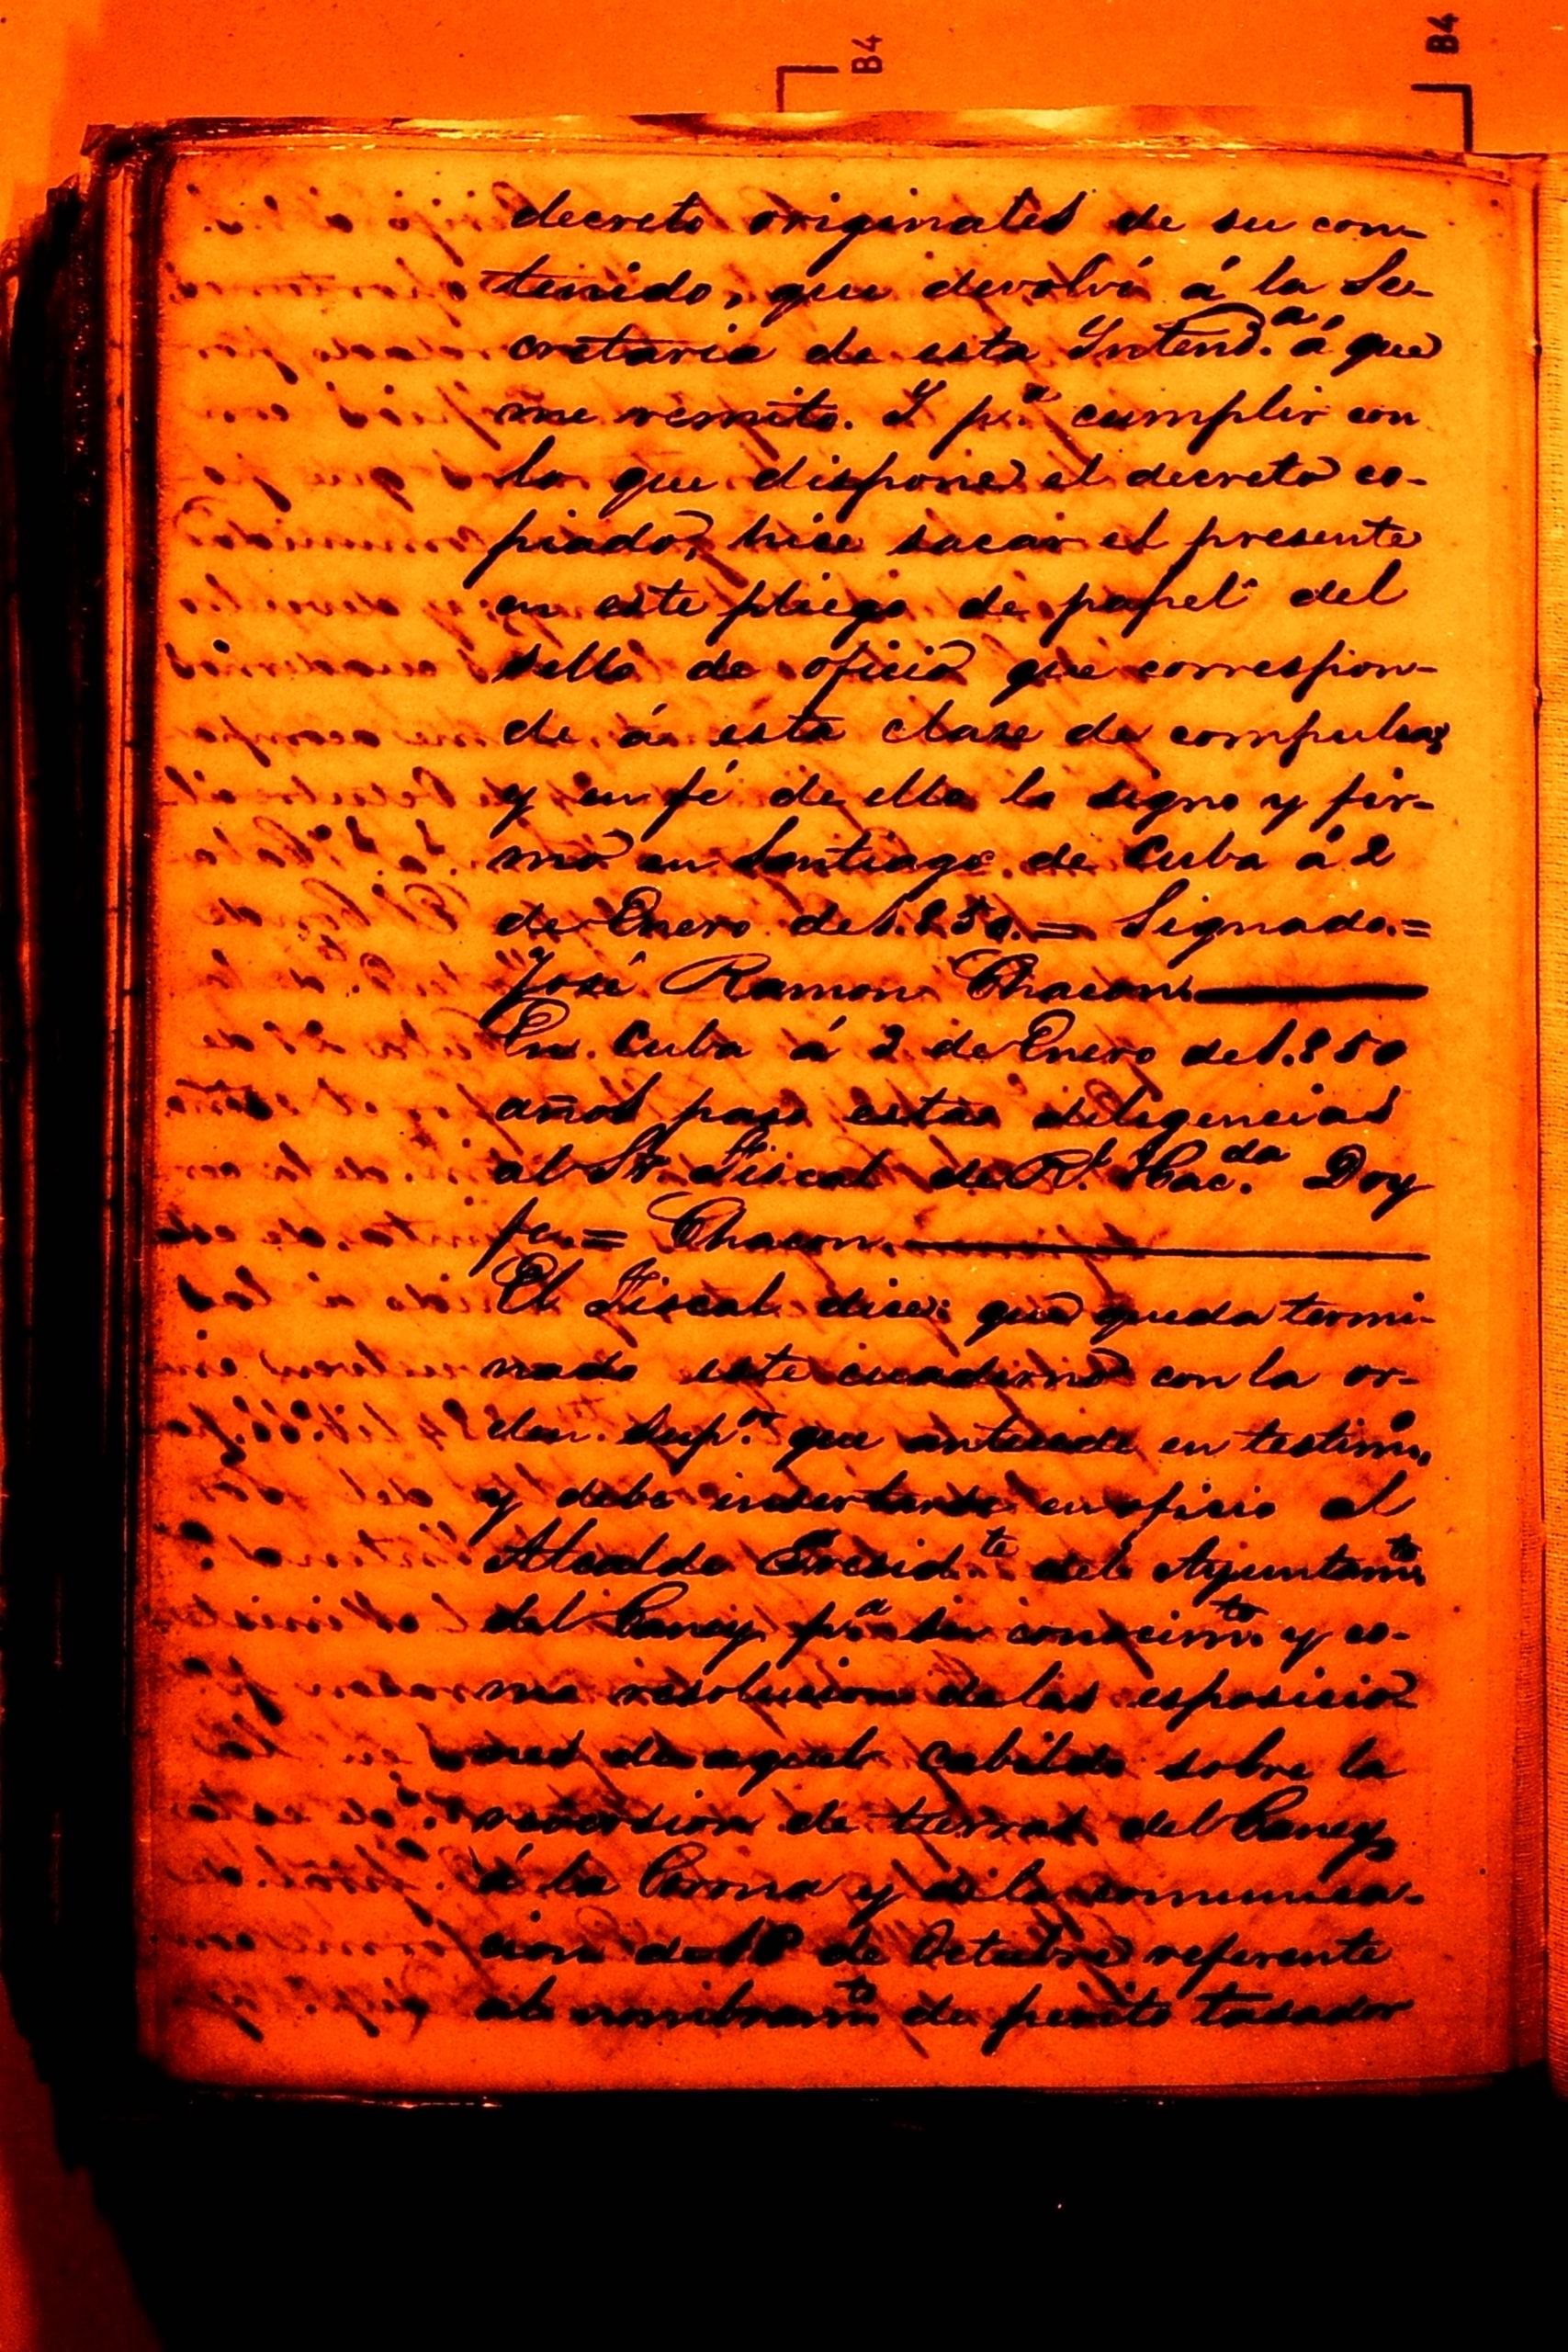 B4
B4
decreto originales de su con-
tenido, que devolví á la Se-
cretaria de esta Intend.ª á que
me remito. Y p.ª cumplir con
lo que dispone el decreto co-
piado, hice sacar el presente
en este pliego de papel del
sello de oficio que correspon-
de á esta clase de compulsas
y en fé de ello lo signo y fir-
mo en Santiago de Cuba á 2
de Enero de 1.850. = Signado. =
José Ramon Chacon.
En Cuba á 2 de Enero de 1.850
años paso estas diligencias
al Sr. Fiscal de R.l Hac.da Doy
fee = Chacon.
El Fiscal dice: que queda termi-
nado este cuaderno con la or-
den Sup.or que antecede en testimo.
y debe insertarse en oficio al
Alcalde Presid.te del Ayuntam.to
del Caney p.ª su conocim.to y co-
mo resolucion de las esposicio-
nes de aquel cabildo sobre la
reversion de tierras del Caney
á la Corona y de la comunica-
cion de 18 de Octubre referente
al nombram.to de perito tasador